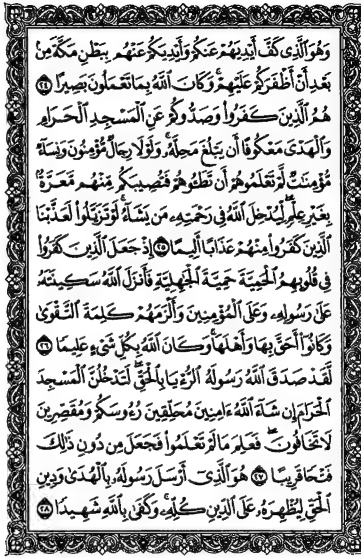 وَهُوَ الَّذِي كَفَّ أَيْدِيَهُمْ عَنكُمْ وَأَيْدِيَكُمْ عَنْهُم بِبَطْنِ مَكَّةَ مِنۢ
بَعْدِ أَنْ أَظْفَرَكُمْ عَلَيْهِمْ ۚ وَكَانَ اللَّهُ بِمَا تَعْمَلُونَ بَصِيرًا ٢٤
هُمُ الَّذِينَ كَفَرُوا وَصَدُّوكُمْ عَنِ الْمَسْجِدِ الْحَرَامِ
وَالْهَدْيَ مَعْكُوفًا أَن يَبْلُغَ مَحِلَّهُ ۚ وَلَوْلَا رِجَالٌ مُّؤْمِنُونَ وَنِسَاءٌ
مُّؤْمِنَاتٌ لَّمْ تَعْلَمُوهُمْ أَن تَطَئُوهُمْ فَتُصِيبَكُم مِّنْهُم مَّعَرَّةٌۢ
بِغَيْرِ عِلْمٍ ۖ لِّيُدْخِلَ اللَّهُ فِي رَحْمَتِهِ مَن يَشَاءُ ۚ لَوْ تَزَيَّلُوا لَعَذَّبْنَا
الَّذِينَ كَفَرُوا مِنْهُمْ عَذَابًا أَلِيمًا ٢٥ إِذْ جَعَلَ الَّذِينَ كَفَرُوا
فِي قُلُوبِهِمُ الْحَمِيَّةَ حَمِيَّةَ الْجَاهِلِيَّةِ فَأَنزَلَ اللَّهُ سَكِينَتَهُ
عَلَىٰ رَسُولِهِ وَعَلَى الْمُؤْمِنِينَ وَأَلْزَمَهُمْ كَلِمَةَ التَّقْوَىٰ
وَكَانُوا أَحَقَّ بِهَا وَأَهْلَهَا ۚ وَكَانَ اللَّهُ بِكُلِّ شَيْءٍ عَلِيمًا ٢٦
لَّقَدْ صَدَقَ اللَّهُ رَسُولَهُ الرُّءْيَا بِالْحَقِّ ۖ لَتَدْخُلُنَّ الْمَسْجِدَ
الْحَرَامَ إِن شَاءَ اللَّهُ ءَامِنِينَ مُحَلِّقِينَ رُءُوسَكُمْ وَمُقَصِّرِينَ
لَا تَخَافُونَ ۖ فَعَلِمَ مَا لَمْ تَعْلَمُوا فَجَعَلَ مِن دُونِ ذَٰلِكَ
فَتْحًا قَرِيبًا ٢٧ هُوَ الَّذِي أَرْسَلَ رَسُولَهُ بِالْهُدَىٰ وَدِينِ
الْحَقِّ لِيُظْهِرَهُ عَلَى الدِّينِ كُلِّهِ ۚ وَكَفَىٰ بِاللَّهِ شَهِيدًا ٢٨